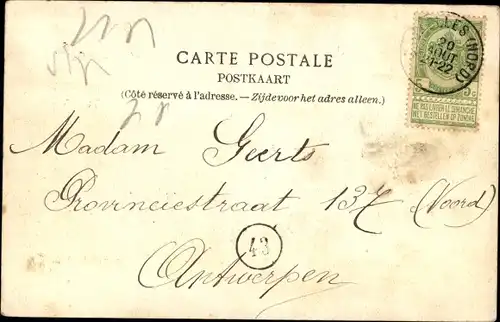 CARTE POSTALE
POSTKAART
(Côté réservé à l'adresse. — Zijde voor het adres alleen.)
LLES (NORD)
20
AOUT
NE PAS LIVRER LE DIMANCHE
NIET BESTELLEN OP ZONDAG
Madam Geerts
Provinciestraat 137 (Noord)
43
Antwerpen